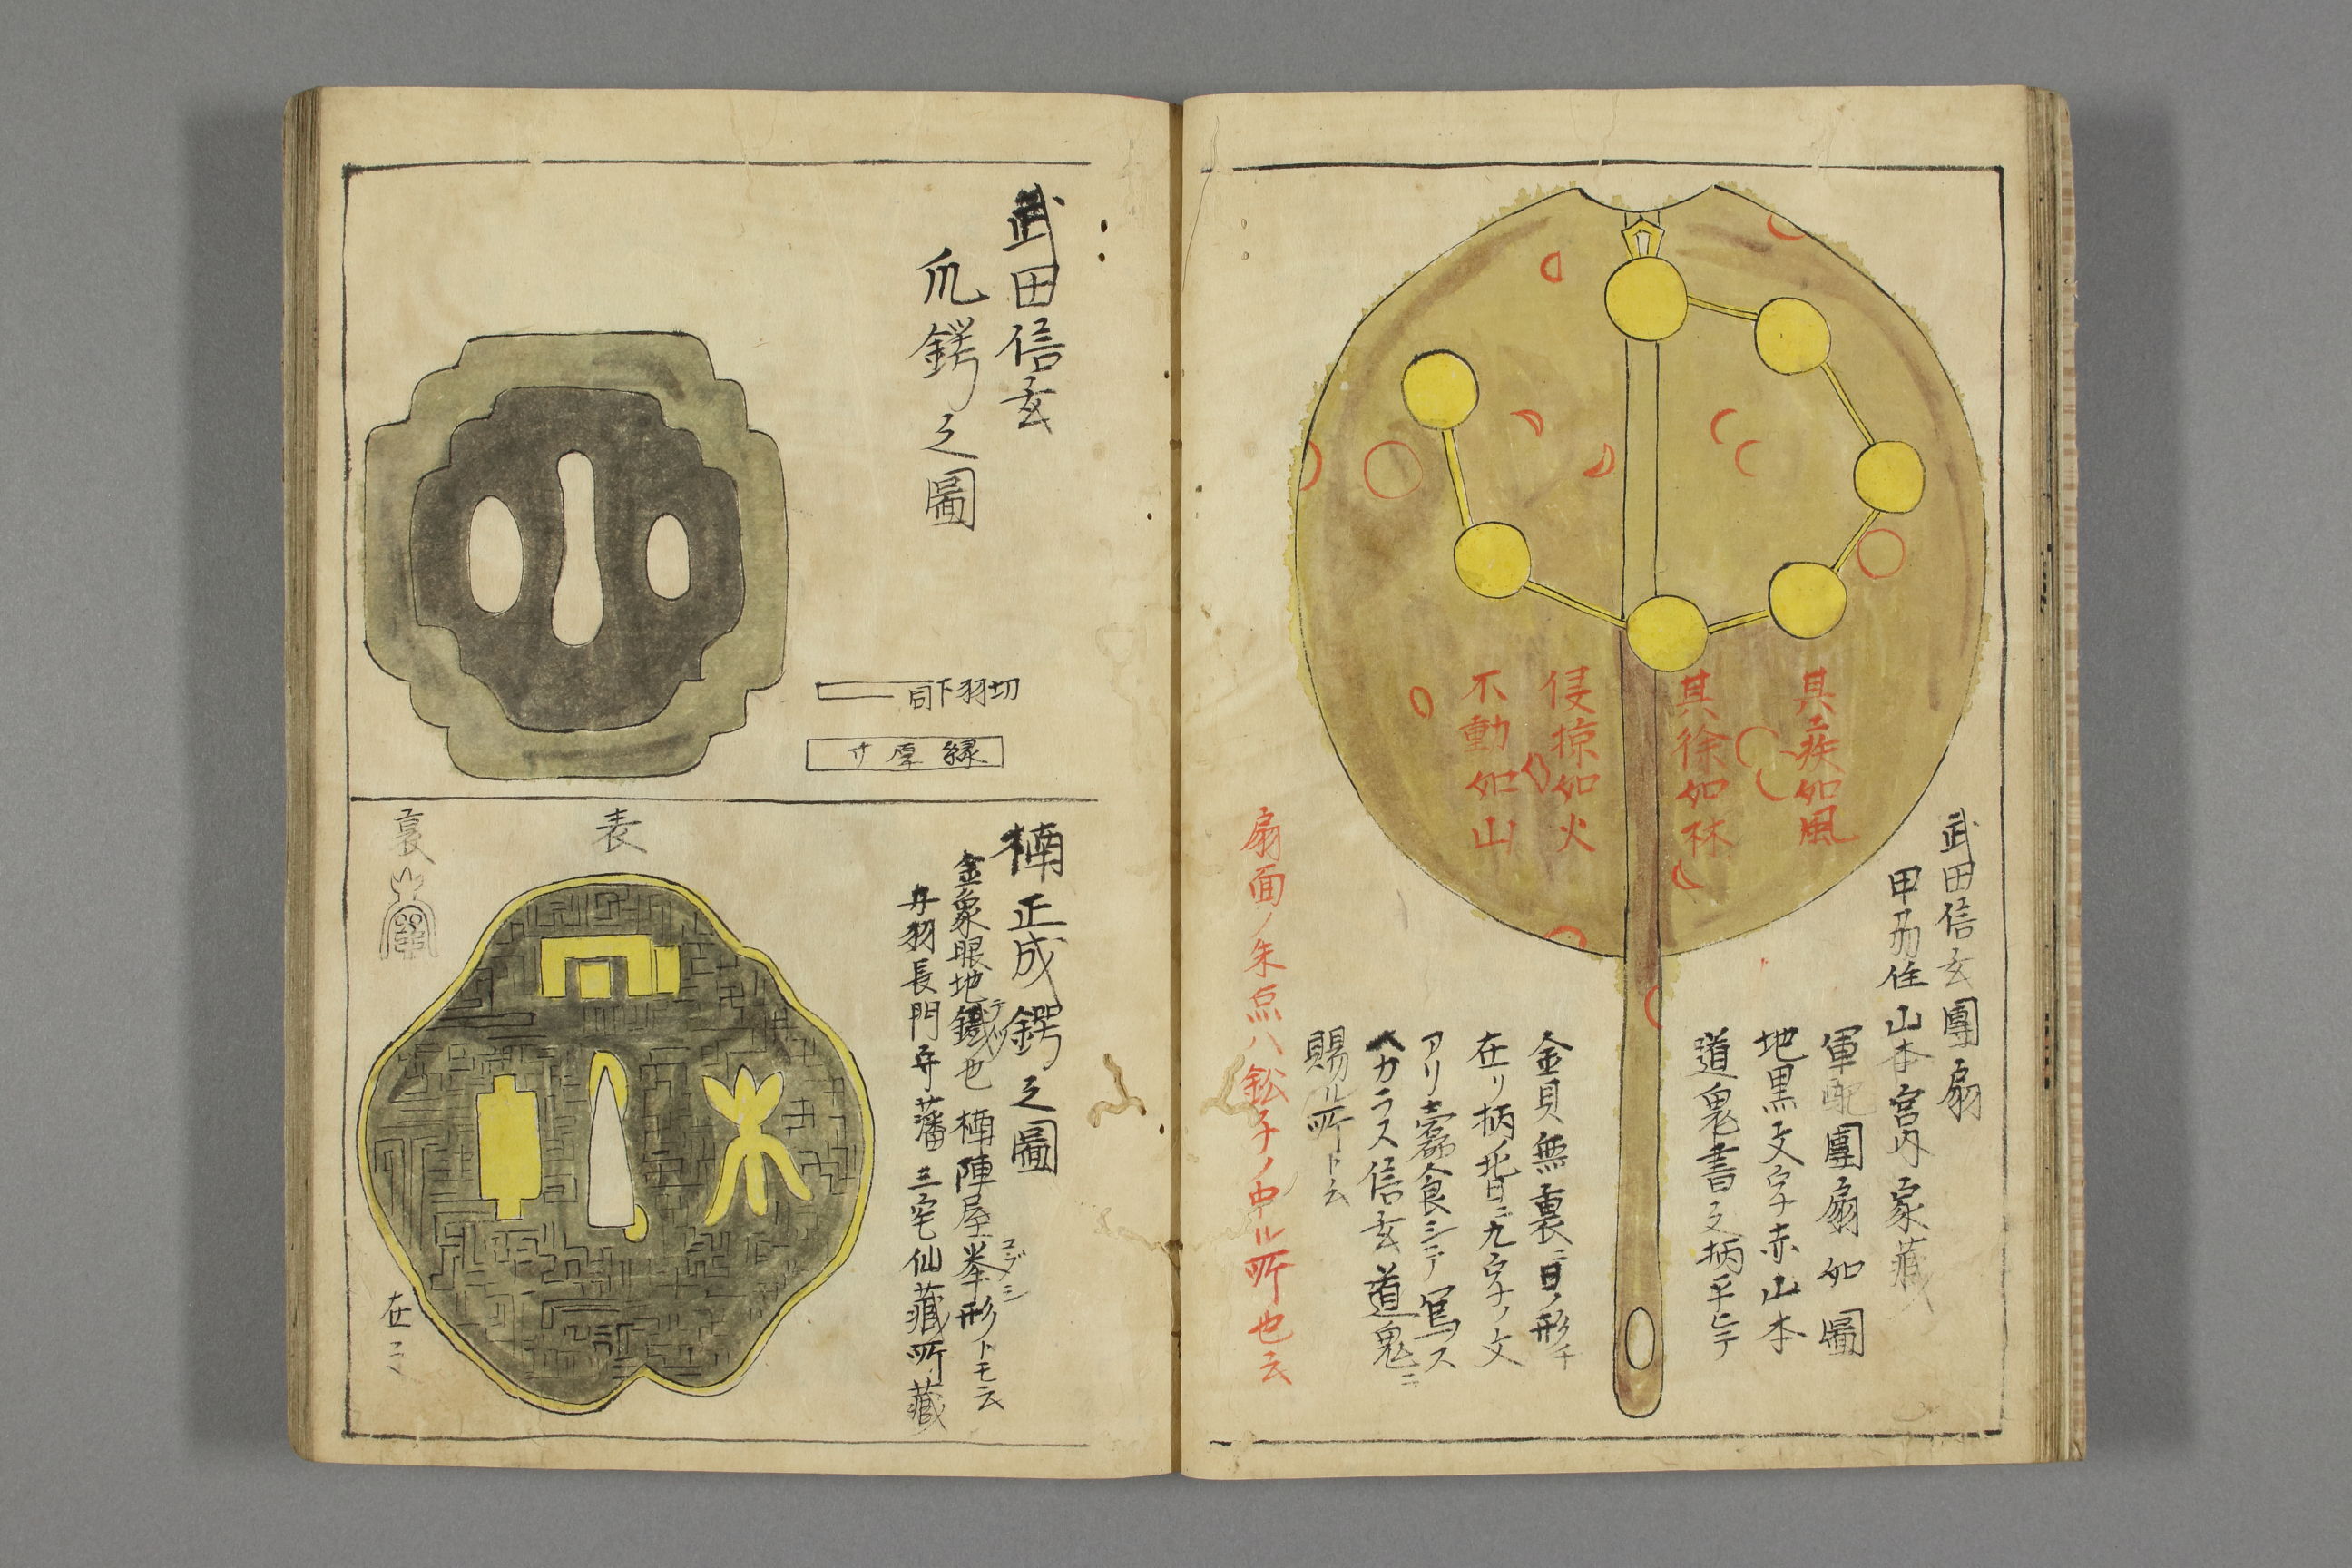 武田信玄團扇
甲刕住山本宮内家藏
軍配團扇如圖
地黒文字赤山本
道鬼書之柄平ヒテ
其疾如風
其徐如林
侵掠如火
不動如山
金貝無裏ニ日ノ形チ
在リ柄ノ背ニ九字ノ文
アリ蠧食シテ写ス
ヘカラス信玄道鬼ニ
賜ル所ト云
扇面ノ朱点ハ鈆子ノ中ル所也云
武田信玄
爪鍔之圖
切羽下同
縁厚サ
楠正成鍔之圖
金象眼地鐵テツ也 楠陣屋拳コブシ形トモ云
丹羽長門守藩 三宅仙藏所藏
表
裏
在二